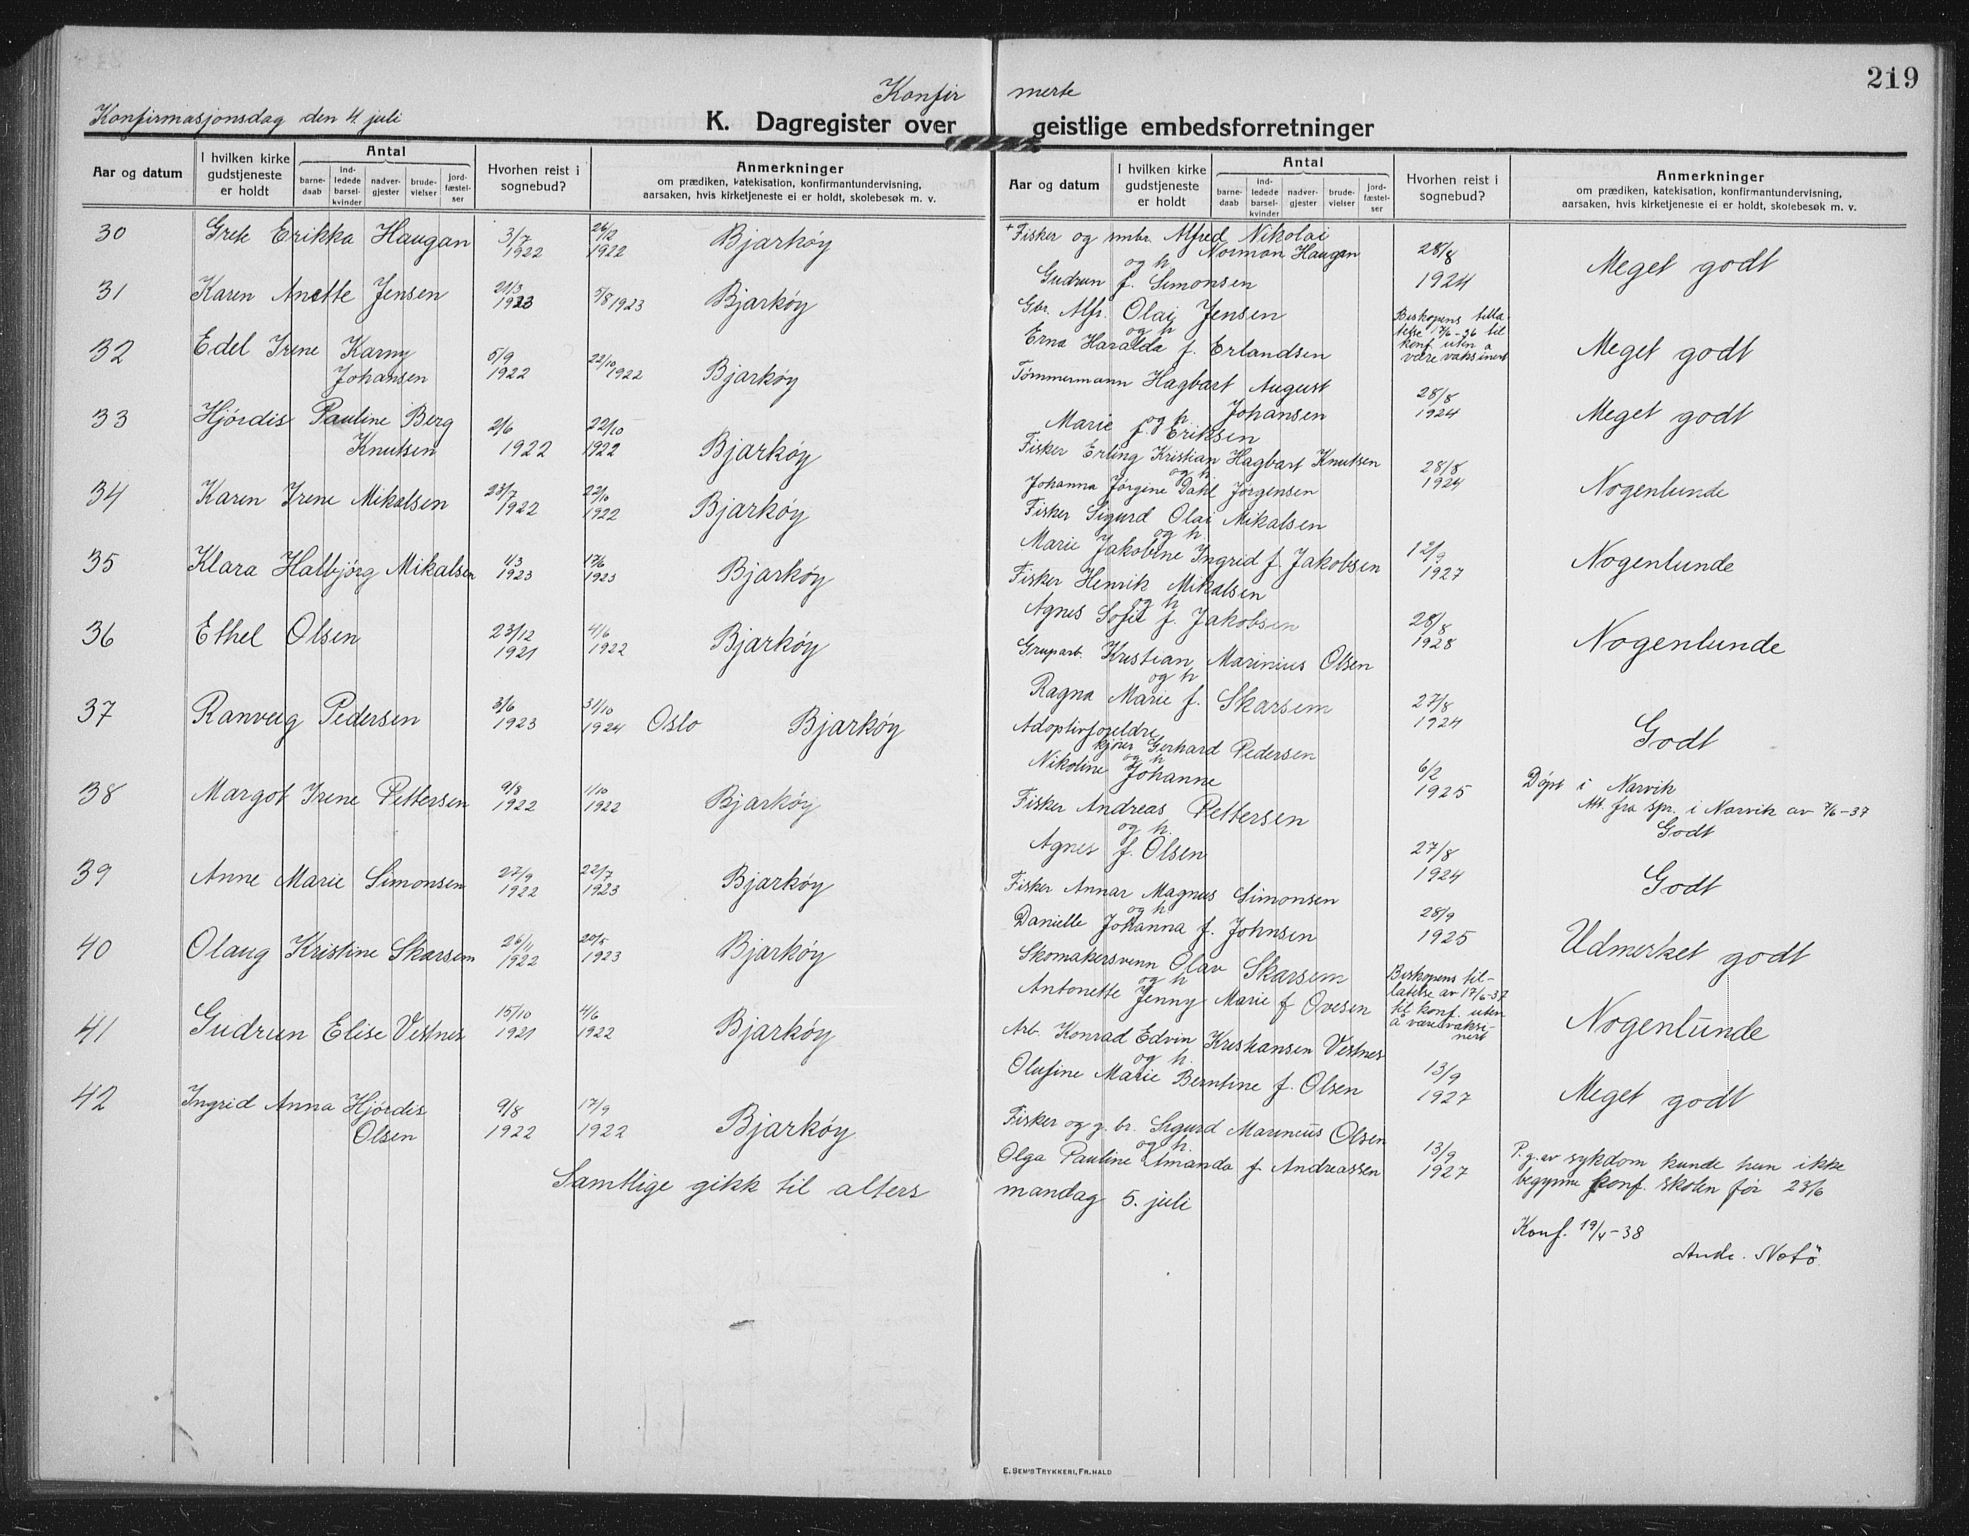 219
Konfirmerte
Konfirmasjonsdag den 4. juli
K. Dagregister over geistlige embedsforretninger
Aar og datum
I hvilken kirke gudstjeneste er holdt
Antal
barne-daab
ind-ledede barsel-kvinder
nadver-gjester
brude-vielser
jord-fæstel-ser
Hvorhen reist i sognebud?
Anmerkninger
om prædiken, katekisation, konfirmantundervisning,
aarsaken, hvis kirketjeneste ei er holdt, skolebesøk m. v.
Aar og datum
I hvilken kirke gudstjeneste er holdt
Antal
barne-daab
ind-ledede barsel-kvinder
nadver-gjester
brude-vielser
jord-fæstel-ser
Hvorhen reist i sognebud?
Anmerkninger
om prædiken, katekisation, konfirmantundervisning,
aarsaken, hvis kirketjeneste ei er holdt, skolebesøk m. v.
30 Grete Erikka Haugan 3/7 1922 26/2 1922 Bjarkøy
+ Fisker og smbr. Alfred Nikolai
Norman Haugan
og h
Gudrun f. Simonsen
28/8 1924 Meget godt
31 Karen Anette Jensen 21/3 1923 5/8 1923 Bjarkøy
Gbr. Alfr. Olai Jensen
og h
Erna Haralda f. Erlandsen
Biskopens tilla-
telse 17/6-36 til
konf. uten å
være vaksinert
Meget godt
32 Edel Irene Karny
Johansen 5/9 1922 22/10 1922 Bjarkøy
Tømmermann Hagbart August
Johansen
og h
Marie f. Eriksen
28/8 1924 Meget godt
33 Hjørdis Pauline Berg
Knutsen 2/6 1922 22/10 1922 Bjarkøy
Fisker Erling Kristian Hagbart Knutsen
og h
Johanna Jørgine Dahl Jørgensen
28/8 1924 Nogenlunde
34 Karen Irene Mikalsen 23/7 1922 22/10 1922 Bjarkøy
Fisker Sigurd Olai Mikalsen
og h.
Marie Jakobine Ingrid f. Jakobsen
12/9 1927 Nogenlunde
35 Klara Halbjørg Mikalsen 4/3 1923 17/6 1923 Bjarkøy
Fisker Henrik Mikalsen
og h
Agnes Sofie f. Jakobsen
28/8 1928 Nogenlunde
36 Ethel Olsen 23/12 1921 4/6 1922 Bjarkøy
Gruparb. Kristian Marinius Olsen
og h
Ragna Marie f. Skarsem
27/8 1924 Godt
37 Ranveig Pedersen 3/6 1923 31/10 1924 Oslo Bjarkøy
Adoptivforeldre
kjører Gerhard Pedersen
og h
Nikoline Johanne
6/2 1925 Døpt i Narvik
Att. fra spr. i Narvik av 7/6-37
Godt
38 Margot Irene Pettersen 9/8 1922 1/10 1922 Bjarkøy
Fisker Andreas Pettersen
og h.
Agnes f. Olsen
27/8 1924 Godt
39 Anne Marie Simonsen 27/9 1922 22/7 1923 Bjarkøy
Fisker Annar Magnus Simonsen
og h
Danielle Johanna f. Johnsen
28/9 1925 Udmerket godt
40 Olaug Kristine Skarsem 26/11 1922 20/5 1923 Bjarkøy
Skomakersvenn Olav Skarsem
og h
Antonette Jenny Marie f Ovesen
Biskopens til-
latelse av 17/6-37
til konf. uten
å være vaksi-
nert
Nogenlunde
41 Gudrun Elise Vestnes 15/10 1921 4/6 1922 Bjarkøy
Arb. Konrad Edvin Kristiansen Vestnes
og h.
Olufine Marie Berntine f. Olsen
13/9 1927 Meget godt
42 Ingrid Anna Hjørdis
Olsen 9/8 1922 17/9 1922 Bjarkøy
Fisker og g. br. Sigurd Marinius Olsen
og h.
Olga Pauline Amanda f. Andreassen
13/9 1927 P. g. av sykdom kunde hun ikke
begynne konf. skolen før 23/6
Konf. 19/4-38
Samtlige gikk til alters mandag 5. juli
E. SEM'S TRYKKERI, FR.HALD